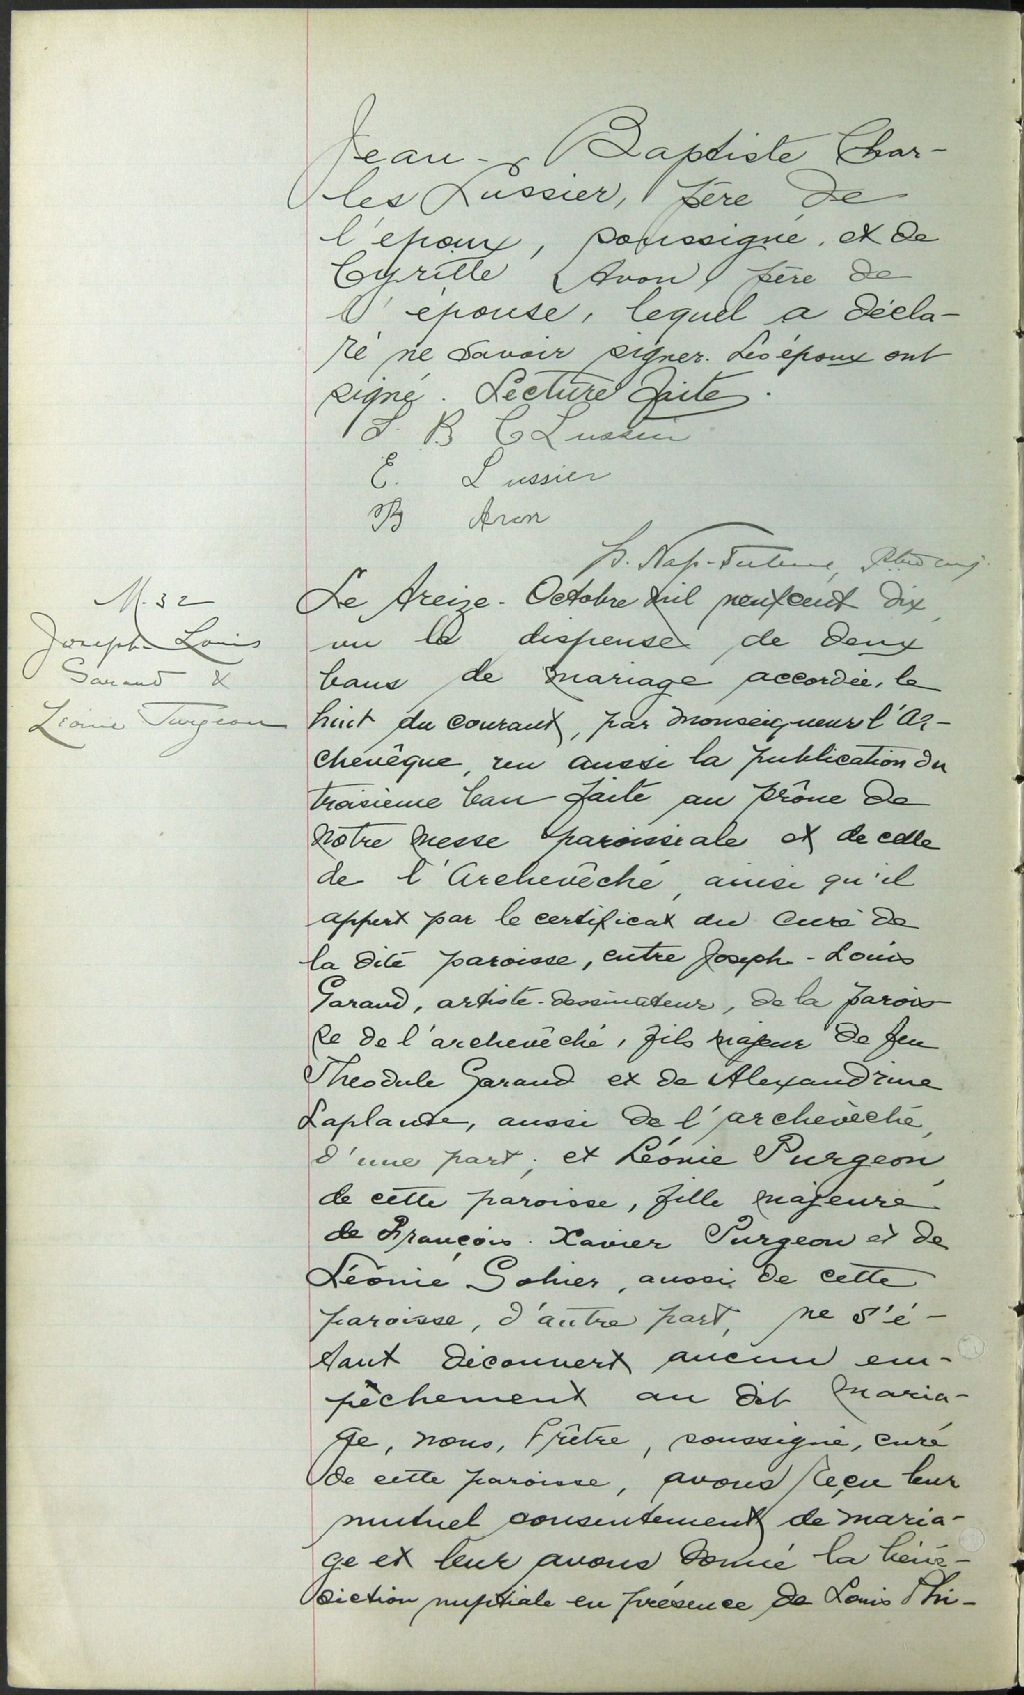 Jean-Baptiste Char-
les Lussier, père de
l'époux, soussigné, et de
Cyrille Avon père de
l'épouse, lequel a décla-
ré ne savoir signer. Les époux ont
signé. Lecture faite.
J. B C Lussier
E. Lussier
B Avon
M. 32
Joseph-Louis
Garand &
Léonie Turgeon
Le treize Octobre mil neuf cent dix,
vu la dispense de deux
bans de mariage accordée, le
huit du courant, par Monseigneur l'Ar-
chevêque, vu aussi la publication du
troisième ban faite au prône de
notre messe paroissiale et de celle
de l'Archevêché, ainsi qu'il
appert par le certificat du curé de
la dite paroisse, entre Joseph-Louis
Garand, artiste-dessinateur, de la parois
se de l'archevêché, fils majeur de feu
Théodule Garand et de Alexandrine
Laplante, aussi de l'archevêché,
d'une part; et Léonie Turgeon,
de cette paroisse, fille majeure
de François-Xavier Turgeon et de
Léonie Gohier, aussi de cette
paroisse, d'autre part, ne s'é-
tant découvert aucun em-
pêchement au dit maria-
ge, nous, Prêtre, soussigné, curé
de cette paroisse, avons reçu leur
mutuel consentement de maria-
ge et leur avons donné la béné-
diction nuptiale en présence de Louis Phi-